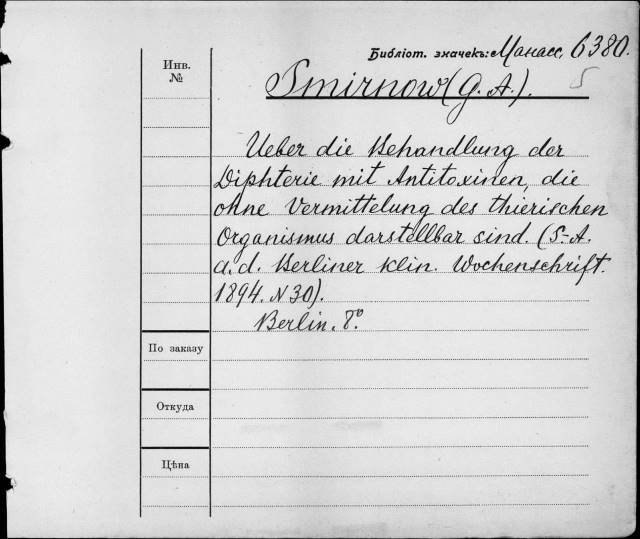 Библіот. значекъ: Манасс, 6380.
Инв. №
5
Smirnow (G. A.).
Ueber die Behandlung der
Diphterie mit Antitoxinen, die
ohne Vermittelung des thierischen
Organismus darstellbar sind. (S.-A.
a. d. Berliner klin. Wochenschrift.
1894. N 30).
Berlin. 8º.
По заказу
Откуда
Цѣна